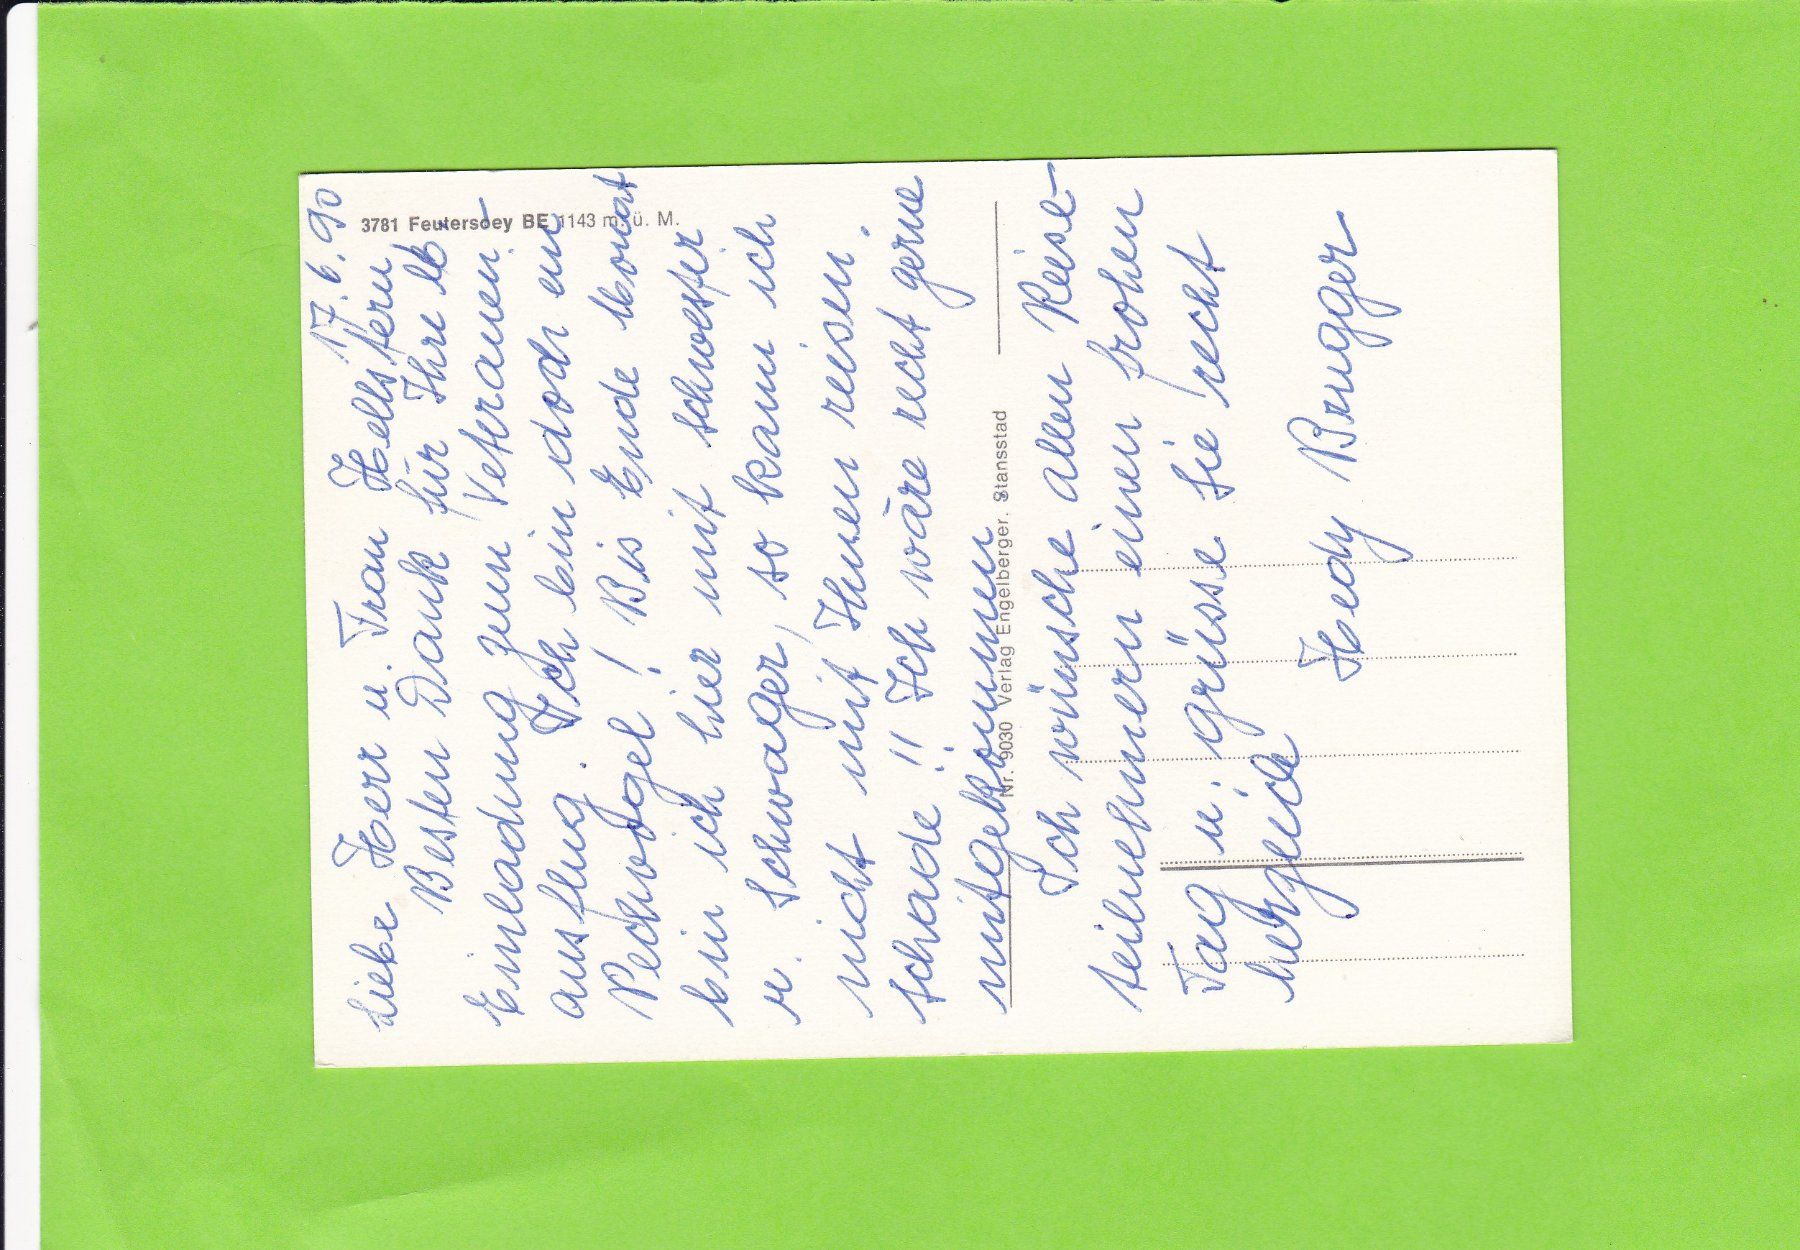 3781 Feutersoey BE 1143 m. ü. M.
17. 6. 90
Liebe Herr u. Frau Hellstern
Besten Dank für Ihre lb.
Einladung zum Veteranen-
ausflug. Ich bin doch ein
Pechvogel! Bis Ende Monat
bin ich hier mit Schwester
u. Schwager, so kann ich
nicht mit Ihnen reisen.
Schade!! Ich wäre recht gerne
mitgekommen
Nr. 9030 Verlag Engelberger. Stansstad
Ich wünsche allen Reise-
teilnehmern einen frohen
Tag u. grüsse Sie recht
herzlich
Hedy Brugger